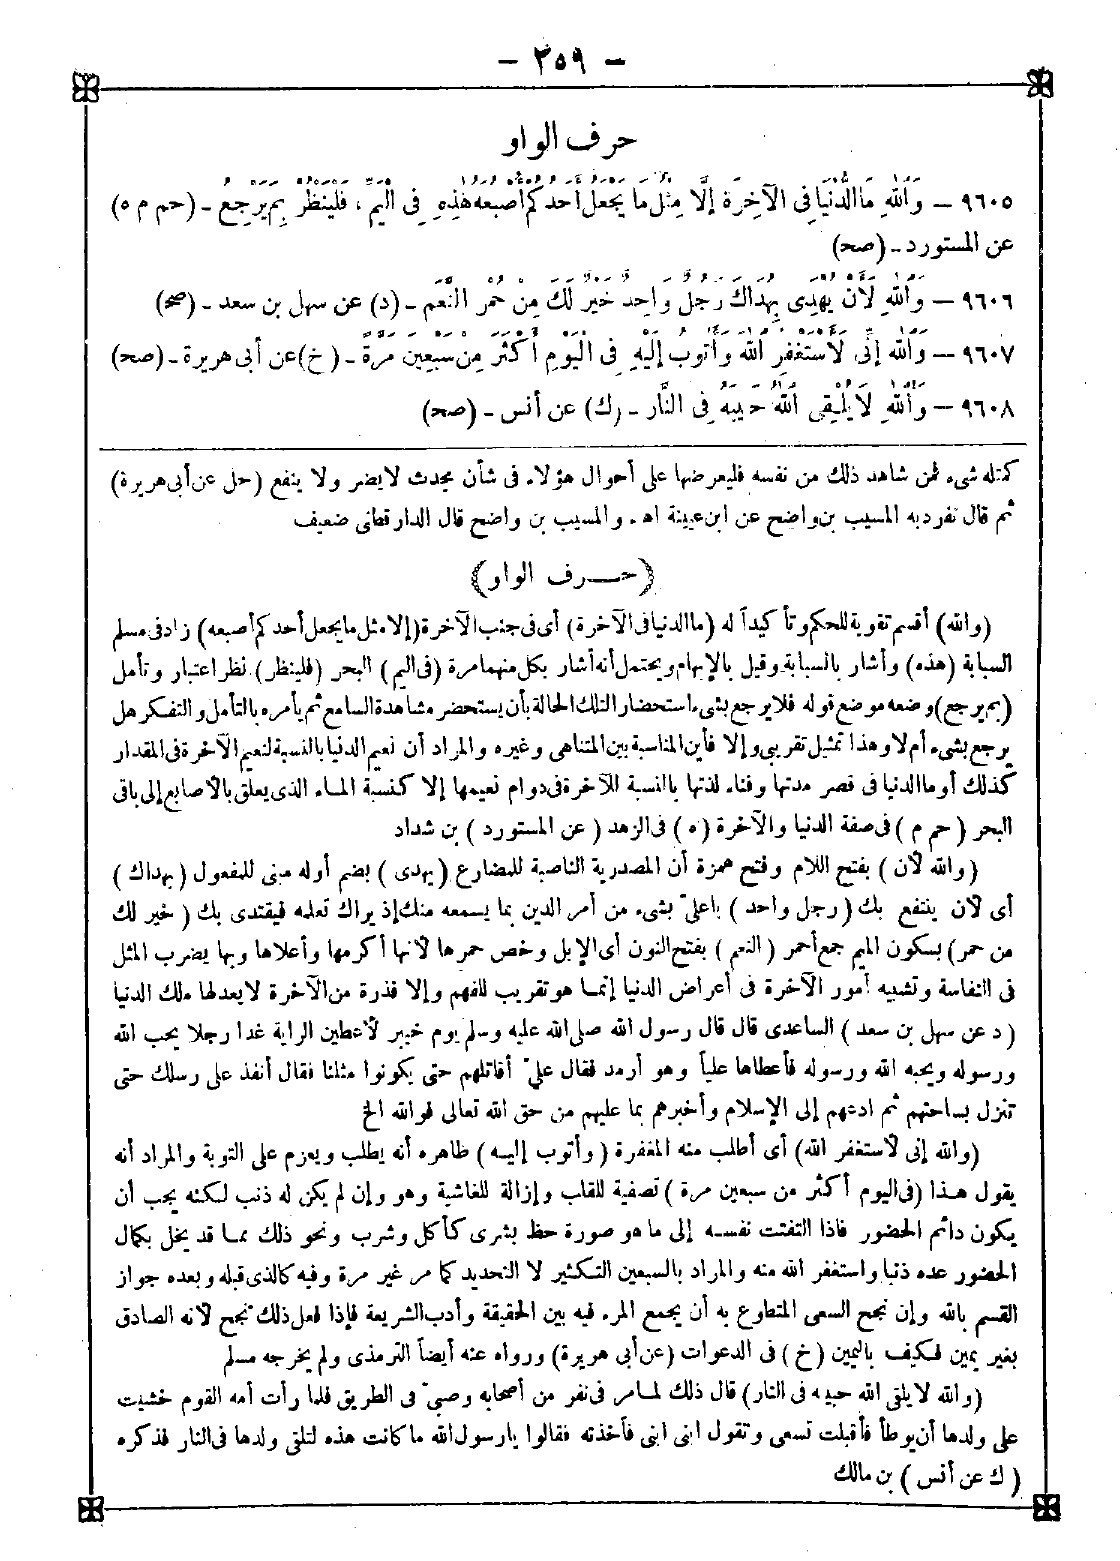 - ٣٥٩ -
حرف الواو
٩٦٠٥ - وَاللهِ مَا الدُّنْيَا فِي الْآخِرَةِ إِلَّا مِثْلُ مَا يَجْعَلُ أَحَدُكُمْ أُصْبُعَهُ هٰذِهِ فِي الْيَمِّ، فَلْيَنْظُرْ بِمَ يَرْجِعُ - (حم م ه)
عن المستورد - (صح)
٩٦٠٦ - وَاللهِ لَأَنْ يُهْدَى بِهُدَاكَ رَجُلٌ وَاحِدٌ خَيْرٌ لَكَ مِنْ حُمْرِ النَّعَمِ - (د) عن سهل بن سعد - (صح)
٩٦٠٧ - وَاللهِ إِنِّي لَأَسْتَغْفِرُ اللهَ وَأَتُوبُ إِلَيْهِ فِي الْيَوْمِ أَكْثَرَ مِنْ سَبْعِينَ مَرَّةً - (خ) عن أبى هريرة - (صح)
٩٦٠٨ - وَاللهِ لَا يُلْقِى اللهُ حَبِيبَهُ فِي النَّارِ - (ك) عن أنس - (صح)
كمثله شىء فمن شاهد ذلك من نفسه فليعرضها على أحوال هؤلاء فى شأن محدث لا يضر ولا ينفع (حل عن أبى هريرة)
ثم قال تفرد به المسيب بن واضح عن ابن عيينة اهـ. والمسيب بن واضح قال الدارقطنى ضعيف
﴿حرف الواو﴾
(والله) أقسم تقوية للحكم وتأكيداً له (ما الدنيا فى الآخرة) أى فى جنب الآخرة (إلا مثل ما يجعل أحدكم أصبعه) زاد فى مسلم
السبابة (هذه) وأشار بالسبابة وقيل بالإبهام ويحتمل أنه أشار بكل منهما مرة (فى اليم) البحر (فلينظر) نظر اعتبار وتأمل
(بم يرجع) وضعه موضع قوله فلا يرجع بشىء استحضار التلك الحالة بأن يستحضر مشاهدة السامع ثم يأمره بالتأمل والتفكر هل
يرجع بشىء أم لا وهذا تمثيل تقريبى وإلا فأين المناسبة بين المتناهى وغيره والمراد أن نعيم الدنيا بالنسبة لنعيم الآخرة فى المقدار
كذلك أو ما الدنيا فى قصر مدتها وفناء لذتها بالنسبة للآخرة فى دوام نعيمها إلا كنسبة الماء الذى يعلق بالأصابع إلى باقى
البحر (حم م) فى صفة الدنيا والآخرة (ه) فى الزهد (عن المستورد) بن شداد
(والله لأن) بفتح اللام وفتح همزة أن المصدرية الناصبة للمضارع (يهدى) بضم أوله مبنى للمفعول (بهداك)
أى لأن ينتفع بك (رجل واحد) يا علىّ بشىء من أمر الدين بما يسمعه منك إذ يراك تعلمه فيقتدى بك (خير لك
من حمر) بسكون الميم جمع أحمر (النعم) بفتح النون أى الإبل وخص حمرها لأنها أكرمها وأعلاها وبها يضرب المثل
فى النفاسة وتشبيه أمور الآخرة فى أعراض الدنيا إنما هو تقريب للفهم وإلا فذرة من الآخرة لا يعدلها ملك الدنيا
(د عن سهل بن سعد) الساعدى قال قال رسول الله صلى الله عليه وسلم يوم خيبر لأعطين الراية غدا رجلا يحب الله
ورسوله ويحبه الله ورسوله فأعطاها علياً وهو أرمد فقال علىّ أقاتلهم حتى يكونوا مثلنا فقال أنفذ على رسلك حتى
تنزل بساحتهم ثم ادعهم إلى الإسلام وأخبرهم بما عليهم من حق الله تعالى فوالله الخ
(والله إنى لأستغفر الله) أى أطلب منه المغفرة (وأتوب إليه) ظاهره أنه يطلب ويعزم على التوبة والمراد أنه
يقول هذا (فى اليوم أكثر من سبعين مرة) تصفية للقلب وإزالة للغاشية وهو وإن لم يكن له ذنب لكنه يجب أن
يكون دائم الحضور فاذا التفتت نفسه إلى ما هو صورة حظ بشرى كأكل وشرب ونحو ذلك مما قد يخل بكمال
الحضور عده ذنبا واستغفر الله منه والمراد بالسبعين التكثير لا التحديد كما مر غير مرة وفيه كالذى قبله وبعده جواز
القسم بالله وإن نجح السعى المتطوع به أن يجمع المرء فيه بين الحقيقة وأدب الشريعة فإذا فعل ذلك نجح لأنه الصادق
بغير يمين فكيف باليمين (خ) فى الدعوات (عن أبى هريرة) ورواه عنه أيضاً الترمذى ولم يخرجه مسلم
(والله لا يلقى الله حبيبه فى النار) قال ذلك لما مر فى نفر من أصحابه وصبىّ فى الطريق فلما رأت أمه القوم خشيت
على ولدها أن يوطأ فأقبلت تسعى وتقول ابنى ابنى فأخذته فقالوا يا رسول الله ما كانت هذه لتلقى ولدها فى النار فذكره
(ك عن أنس) بن مالك